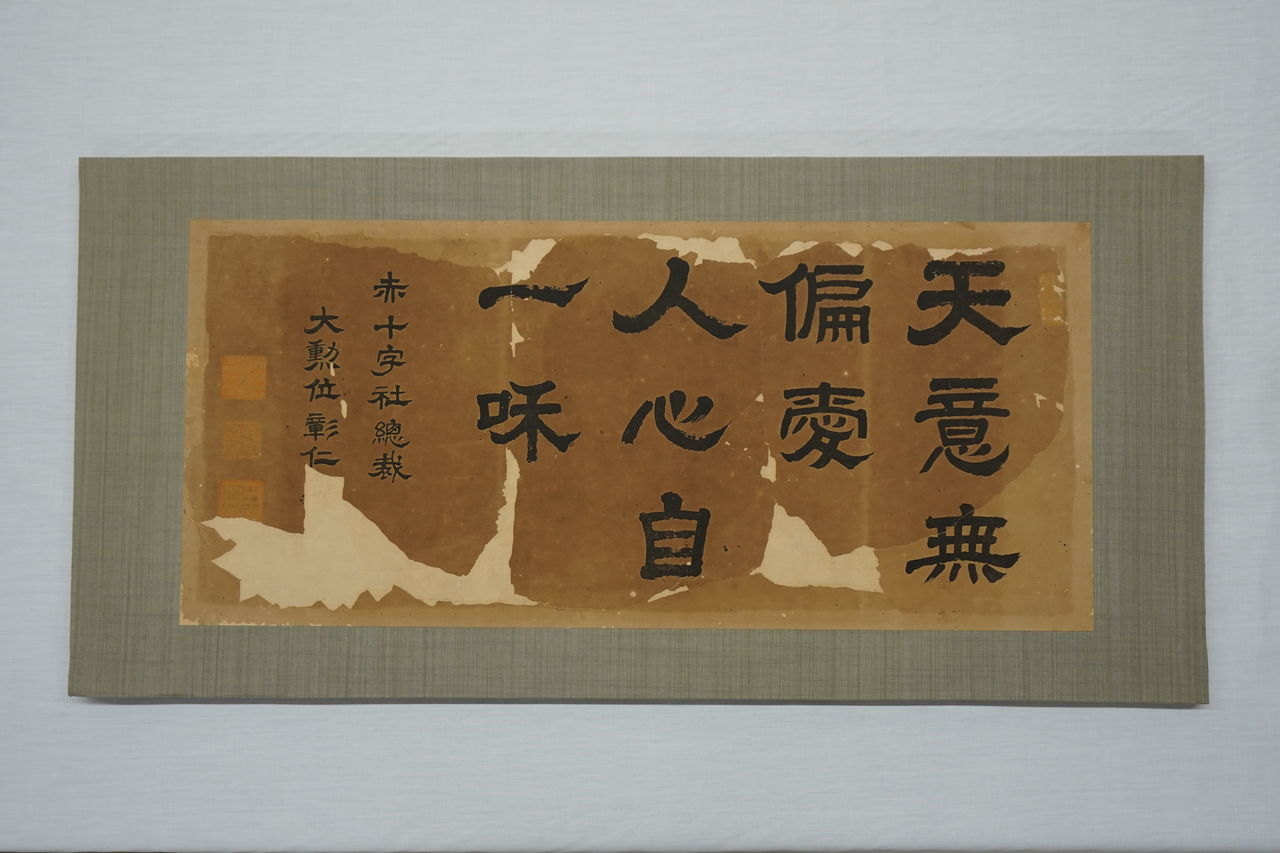 天意無
偏愛
人心自
一和
赤十字社總裁
大勲位彰仁